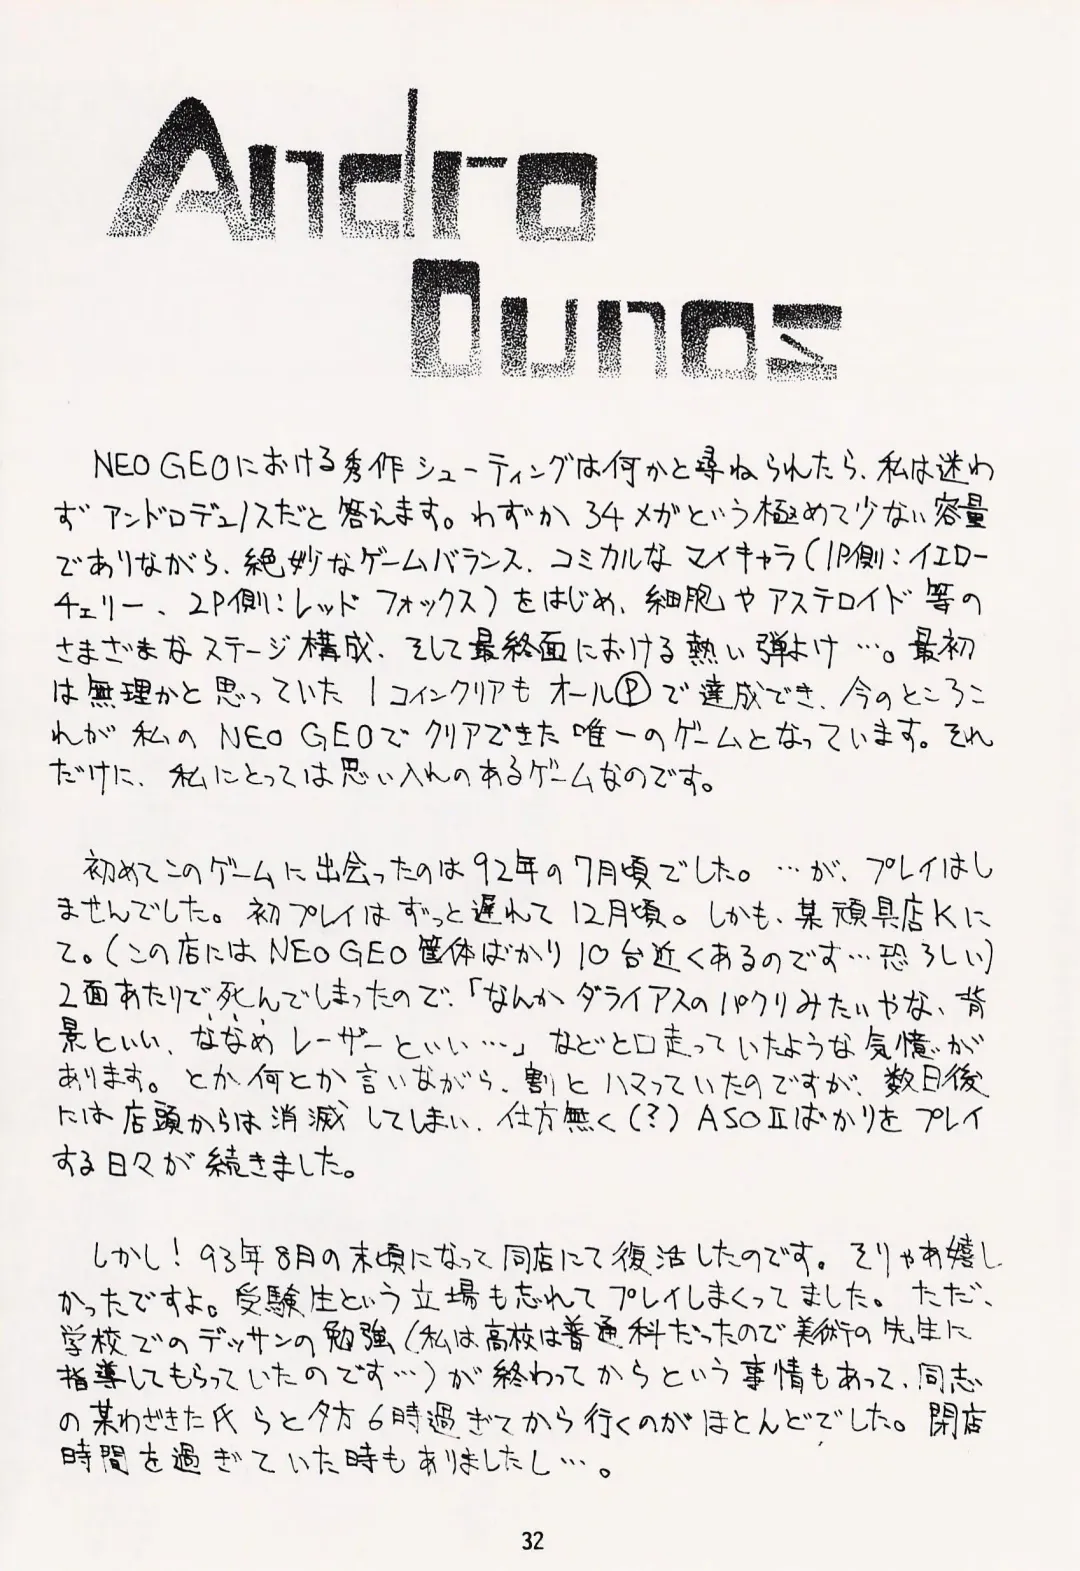 Andro
Dunos
NEO GEOにおける秀作シューティングは何かと尋ねられたら、私は迷わ
ずアンドロデュノスだと答えます。わずか34メガという極めて少ない容量
でありながら、絶妙なゲームバランス、コミカルなマイキャラ(1P側:イエロー
チェリー、2P側:レッドフォックス)をはじめ、細胞やアステロイド等の
さまざまなステージ構成、そして最終面における熱い弾よけ…。最初
は無理かと思っていた1コインクリアもオールⓅで達成でき、今のところこ
れが私のNEO GEOでクリアできた唯一のゲームとなっています。それ
だけに、私にとっては思い入れのあるゲームなのです。
初めてこのゲームに出会ったのは92年の7月頃でした。…が、プレイはし
ませんでした。初プレイはずっと遅れて12月頃。しかも、某頑具店Kに
て。(この店にはNEO GEO筐体ばかり10台近くあるのです…恐ろしい)
2面あたりで死んでしまったので、「なんかダライアスのパクリみたいやな、背
景といい、ななめレーザーといい…」などと口走っていたような気憶が
あります。とか何とか言いながら、割とハマっていたのですが、数日後
には店頭からは消滅してしまい、仕方無く(?)ASOⅡばかりをプレイ
する日々が続きました。
しかし!93年8月の末頃になって同店にて復活したのです。そりゃあ嬉し
かったですよ。受験生という立場も忘れてプレイしまくってました。ただ、
学校でのデッサンの勉強(私は高校は普通科だったので美術の先生に
指導してもらっていたのです…)が終わってからという事情もあって、同志
の某わざきた氏らと夕方6時過ぎてから行くのがほとんどでした。閉店
時間を過ぎていた時もありましたし…。
32